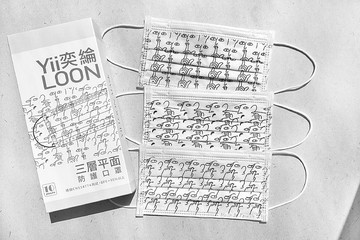 Yii奕綸
LOON
三層平面
防護口罩